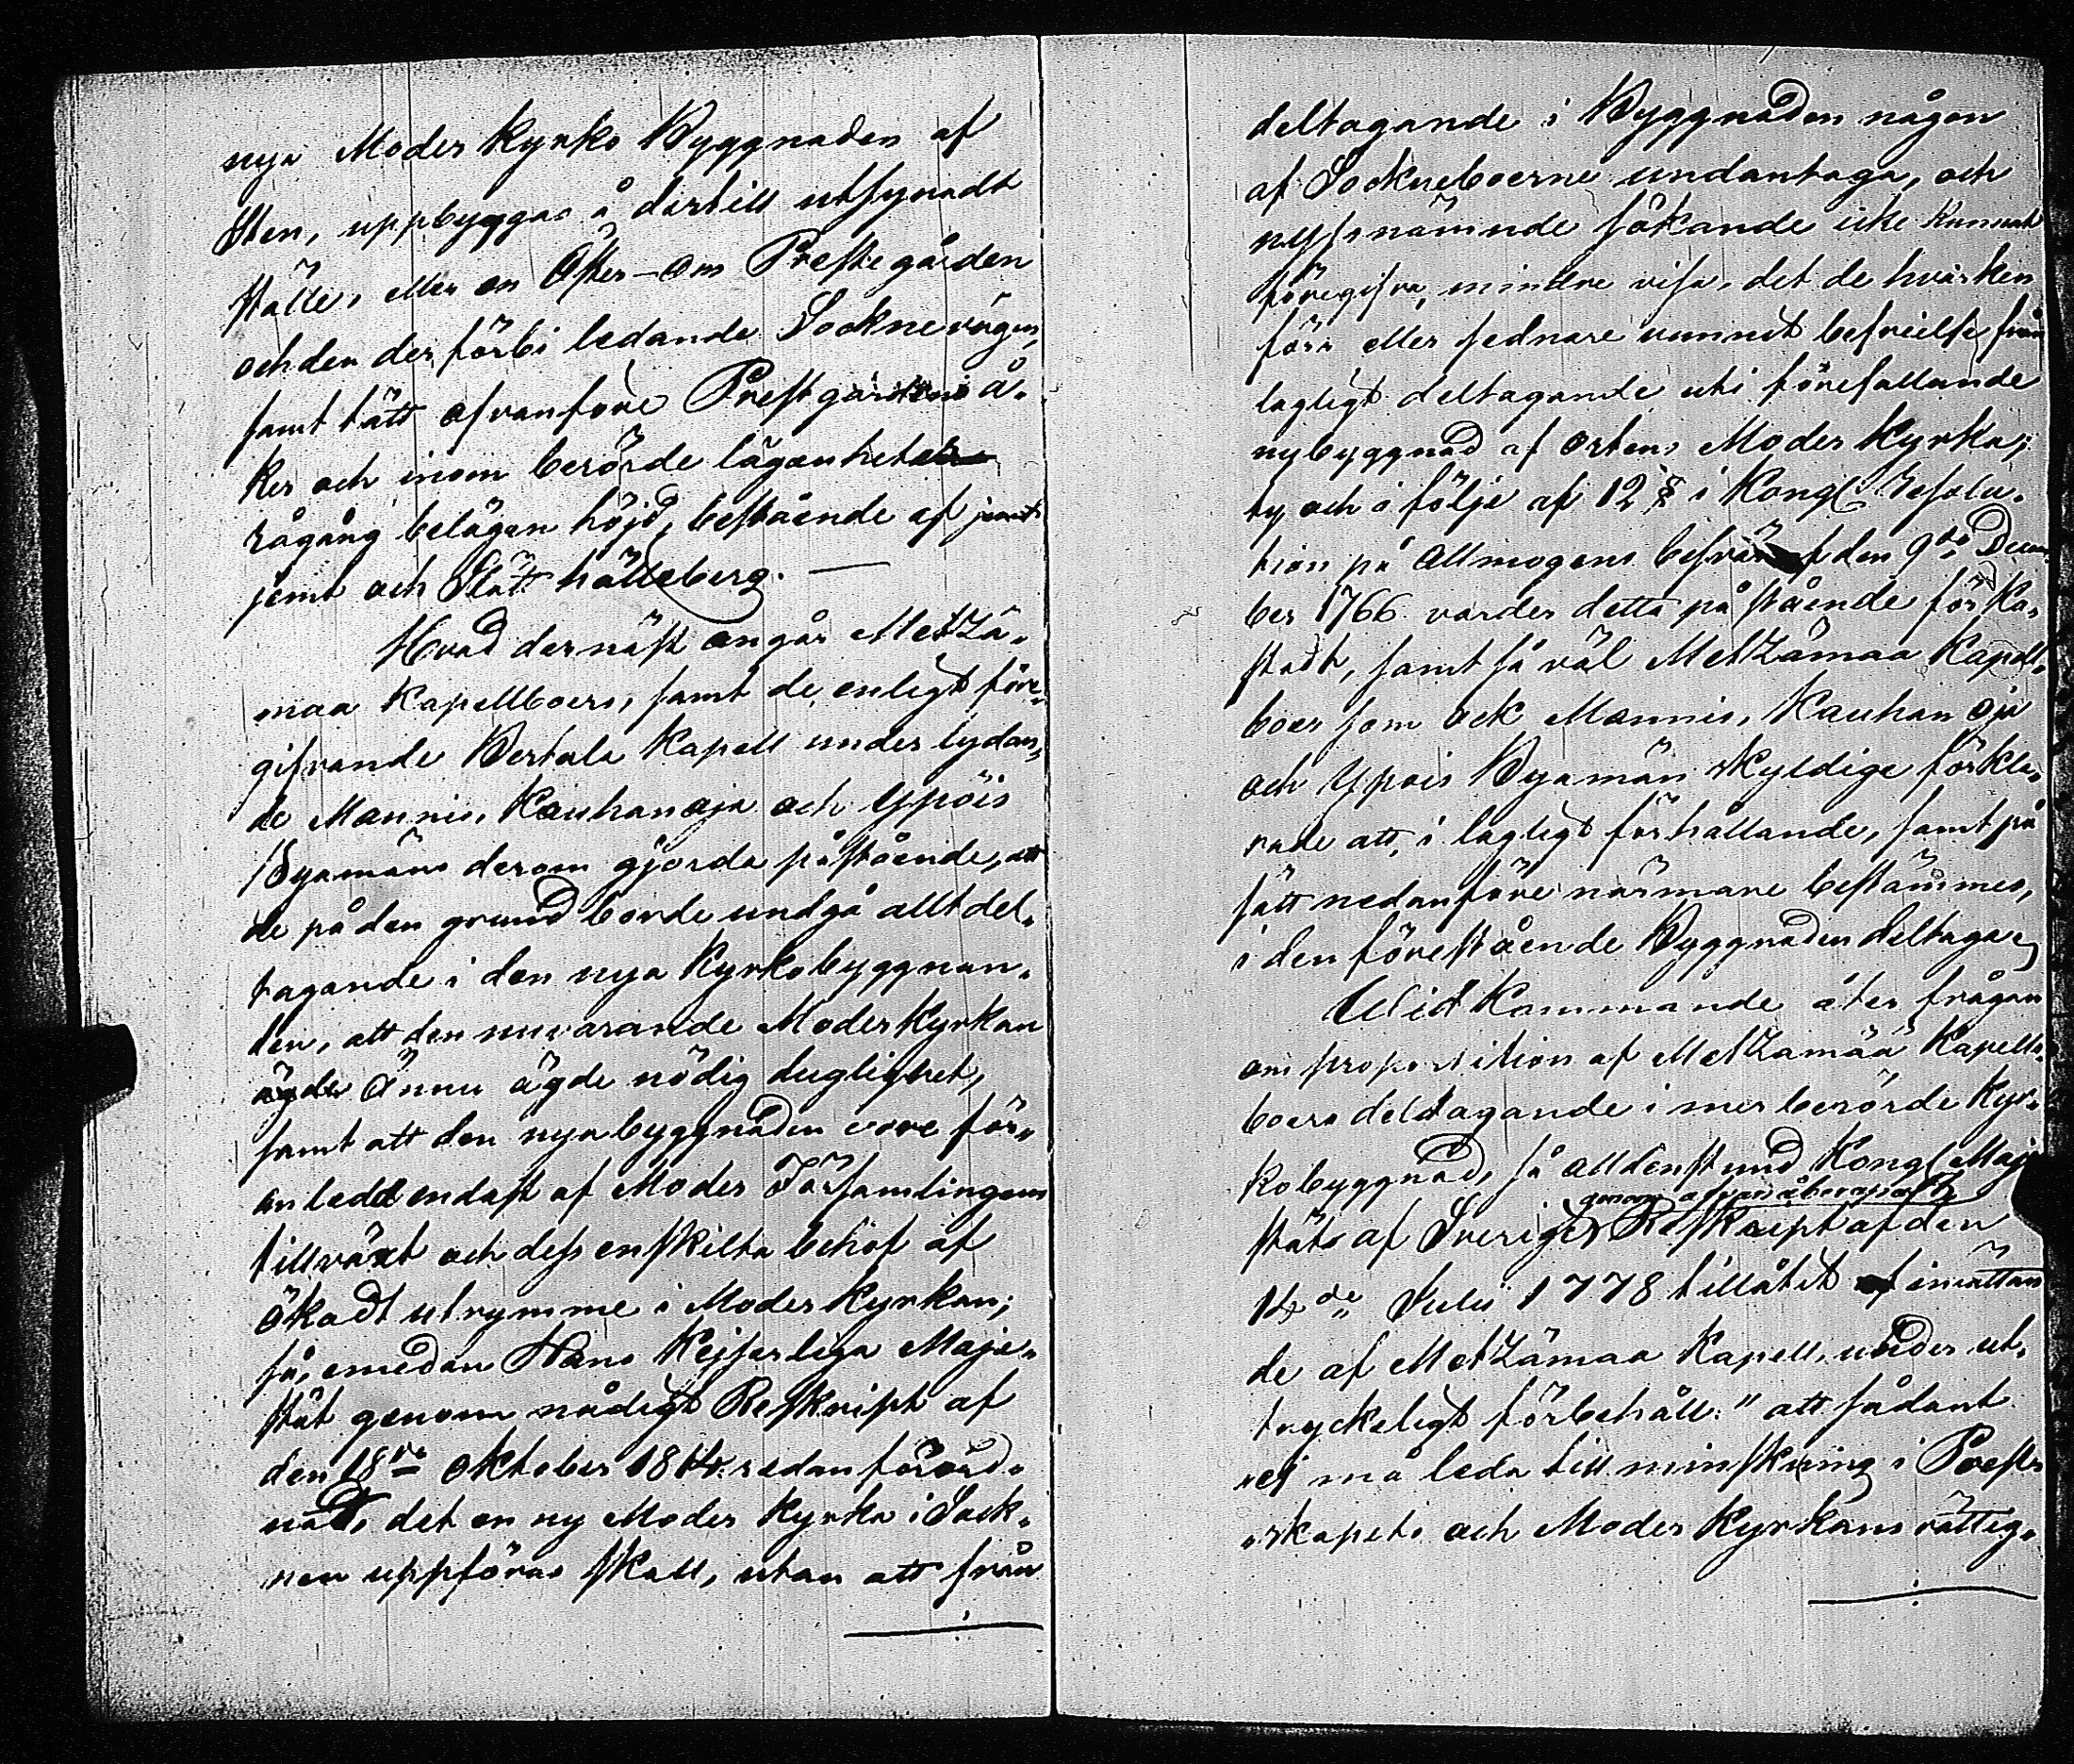 nya Moder Kyrko Byggnaden af
Sten, uppbyggas å dertill utsynadt
ställe, eller en Öster om Prestegården
och den der förbi ledande Sockne vägen,
samt tätt ofvanföre Prestgårdens å-
ker och inom berörde lägenheters
rågång belägen höjd, bestående af jemt
jemt och Slätt hälleberg. —
Hvad dernäst angår Metzä-
maa Kapellboers, samt de, enligt före-
gifvande Vertala Kapell under lydan-
de Mannis, Kauhanoja och Ypöis
Byamäns derom gjorda påstående, att
de på den grund borde undgå allt del-
tagande i den nya Kyrkobyggnan-
den, att den nuvarande Moder Kyrkan
ägde ännu ägde nödig duglighet,
samt att den nya byggnaden vore för-
anledd endast af Moder Församlingens
tillväxt och dess enskilta behof af
ökadt utrymme i Moder Kyrkan;
så, emedan Hans Kejserliga Maje-
stät genom nådigt Reskript af
den 18de Oktober 1814 redan förord-
nadt, det en ny Moder Kyrka i Sock-
nen uppföras skall, utan att från
deltagande i Byggnaden någon
af Sockneboerne undantaga, och
nyssnämnde sökande icke kunnat
föregifva, mindre visa, det de hvarken
förr eller sednare vunnit befrielse från
lagligt deltagande uti förefallande
nybyggnad af ortens Moder Kyrka;
ty och i följe af 12 § i Kongl. Resolu-
tion på Allmogens besvär af den 9de Decem-
ber 1766 varder detta påstående förka-
stadt, samt så väl Metzämaa Kapell-
boer som ock Mannis, Kauhanoja
och Ypois Byamän skyldige förkla-
rade att, i lagligt förhållande, samt på
sätt nedanföre närmare bestämmes,
i den förestående Byggnaden deltaga.
Vidkommande åter frågan
om proportition af Metzämää Kapell-
boers deltagande i mer berörde Kyr-
kobyggnad, så alldenstund Kongl. Maje-
genom ofvanåberopadt
stät af Sverige Reskript af den
14de Julii 1778 tillåtit af inrättan-
de af Metzämaa Kapell, under ut-
tryckeligt förbehåll: "att sådant
"ej må leda till minskning i Prester-
"skapets och Moder Kyrkans rättig-